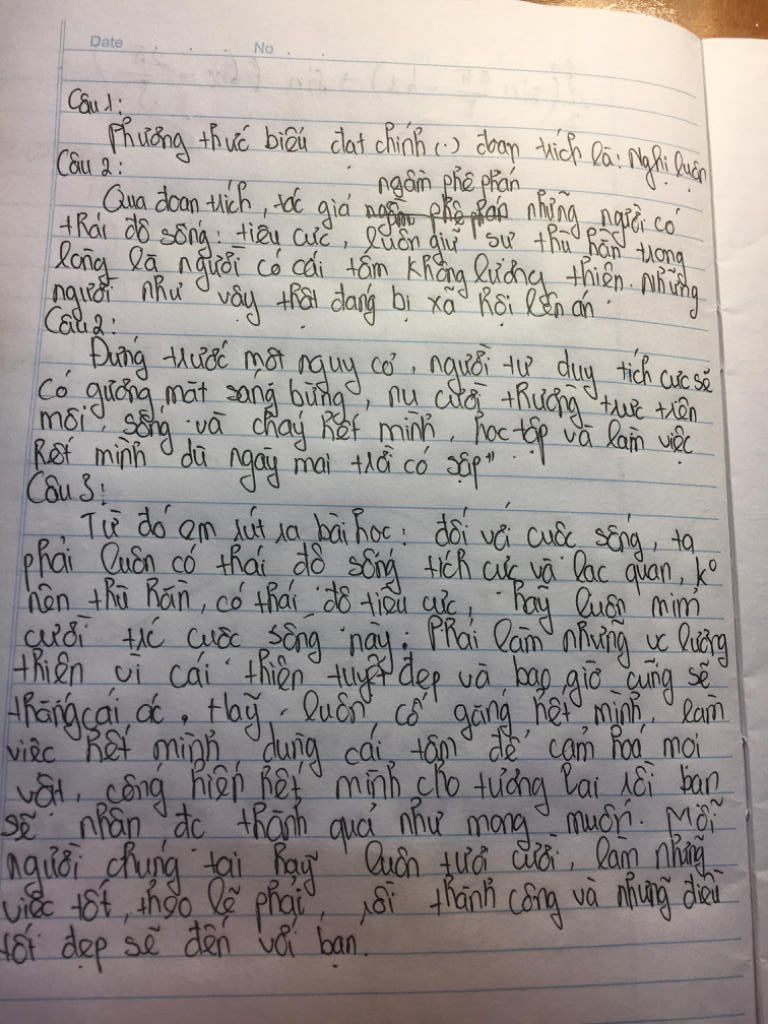 Date . . . . No . .
Câu 1:
Phương thức biểu đạt chính (.) đoạn trích là: Nghị luận
Câu 2:
ngầm phê phán
Qua đoạn trích, tác giả ngầm phê phán những người có
thái độ sống: tiêu cực, luôn giữ sự thù hằn trong
lòng là người có cái tâm không lương thiện. Những
người như vậy thật đáng bị xã hội lên án.
Câu 2:
Đứng trước một nguy cơ, người tư duy tích cực sẽ
có gương mặt sáng bừng, nụ cười thường trực trên
môi, sống và cháy hết mình, học tập và làm việc
hết mình dù ngày mai trời có sập"
Câu 3:
Từ đó em rút ra bài học: đối với cuộc sống, ta
phải luôn có thái độ sống tích cực và lạc quan, k°
nên thù hằn, có thái độ tiêu cực, hãy luôn mỉm
cười từ cuộc sống này: Phải làm những vc lương
thiện vì cái thiện tuyệt đẹp và bao giờ cũng sẽ
thắng cái ác. Hãy luôn cố gắng hết mình, làm
việc hết mình, dùng cái tâm để cảm hoá mọi
vật, cống hiến hết mình cho tương lai rồi bạn
sẽ nhận đc thành quả như mong muốn. Mỗi
người chúng tai hãy luôn tươi cười, làm những
việc tốt, theo lẽ phải, rồi thành công và những điều
tốt đẹp sẽ đến với bạn.